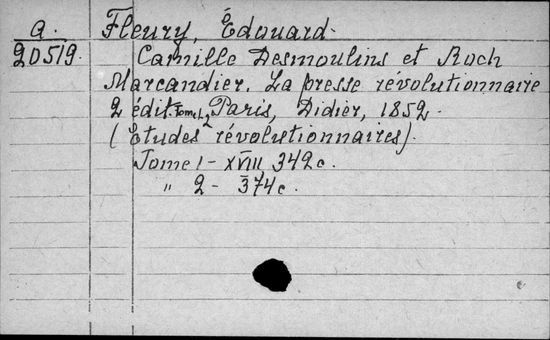 a. Fleury, Édouard.
20519. Camille Desmoulins et Roch
Marcandier. La presse révolutionnaire
2 édit. Tome 1, 2 Paris, Didier, 1852.
(Études révolutionnaires).
Tome 1 - XVIII 342 c.
" 2 - 374 c.